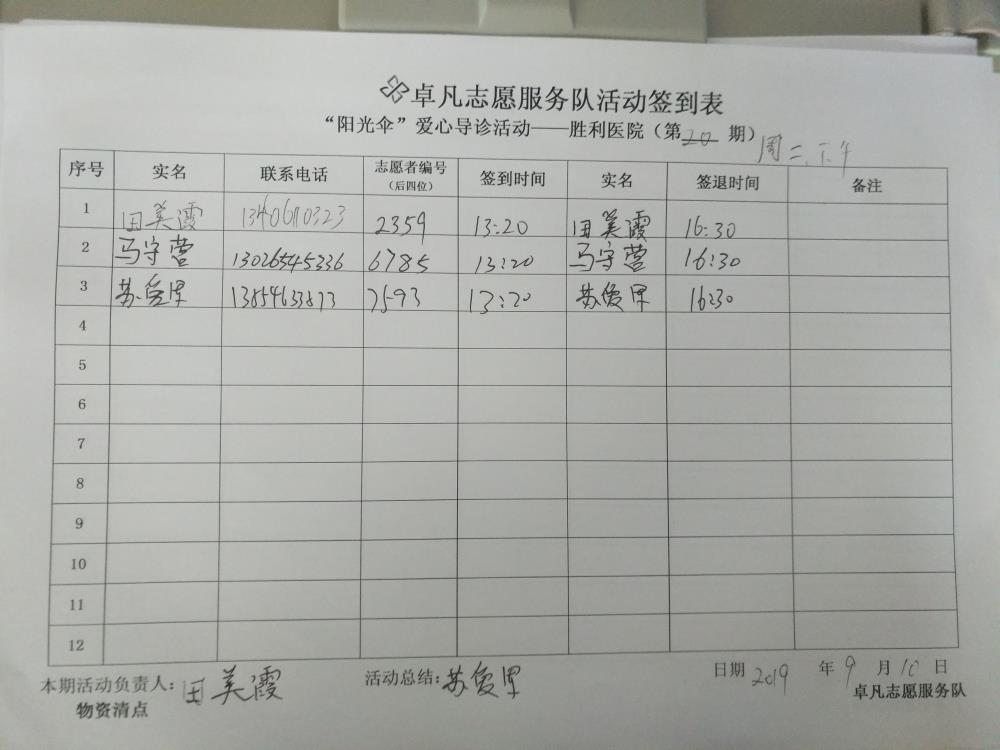 卓凡志愿服务队活动签到表
“阳光伞”爱心导诊活动——胜利医院（第 20 期）
周二、下午
序号 实名 联系电话 志愿者编号（后四位） 签到时间 实名 签退时间 备注
1 田美霞 2359 13:20 田美霞 16:30
2 马守营 13026545336 6785 13:20 马守营 16:30
3 苏爱军 13854633873 7593 13:20 苏爱军 16:30
4
5
6
7
8
9
10
11
12
本期活动负责人：田美霞 活动总结：苏爱军 日期 2019 年 9 月 10 日
物资清点 卓凡志愿服务队